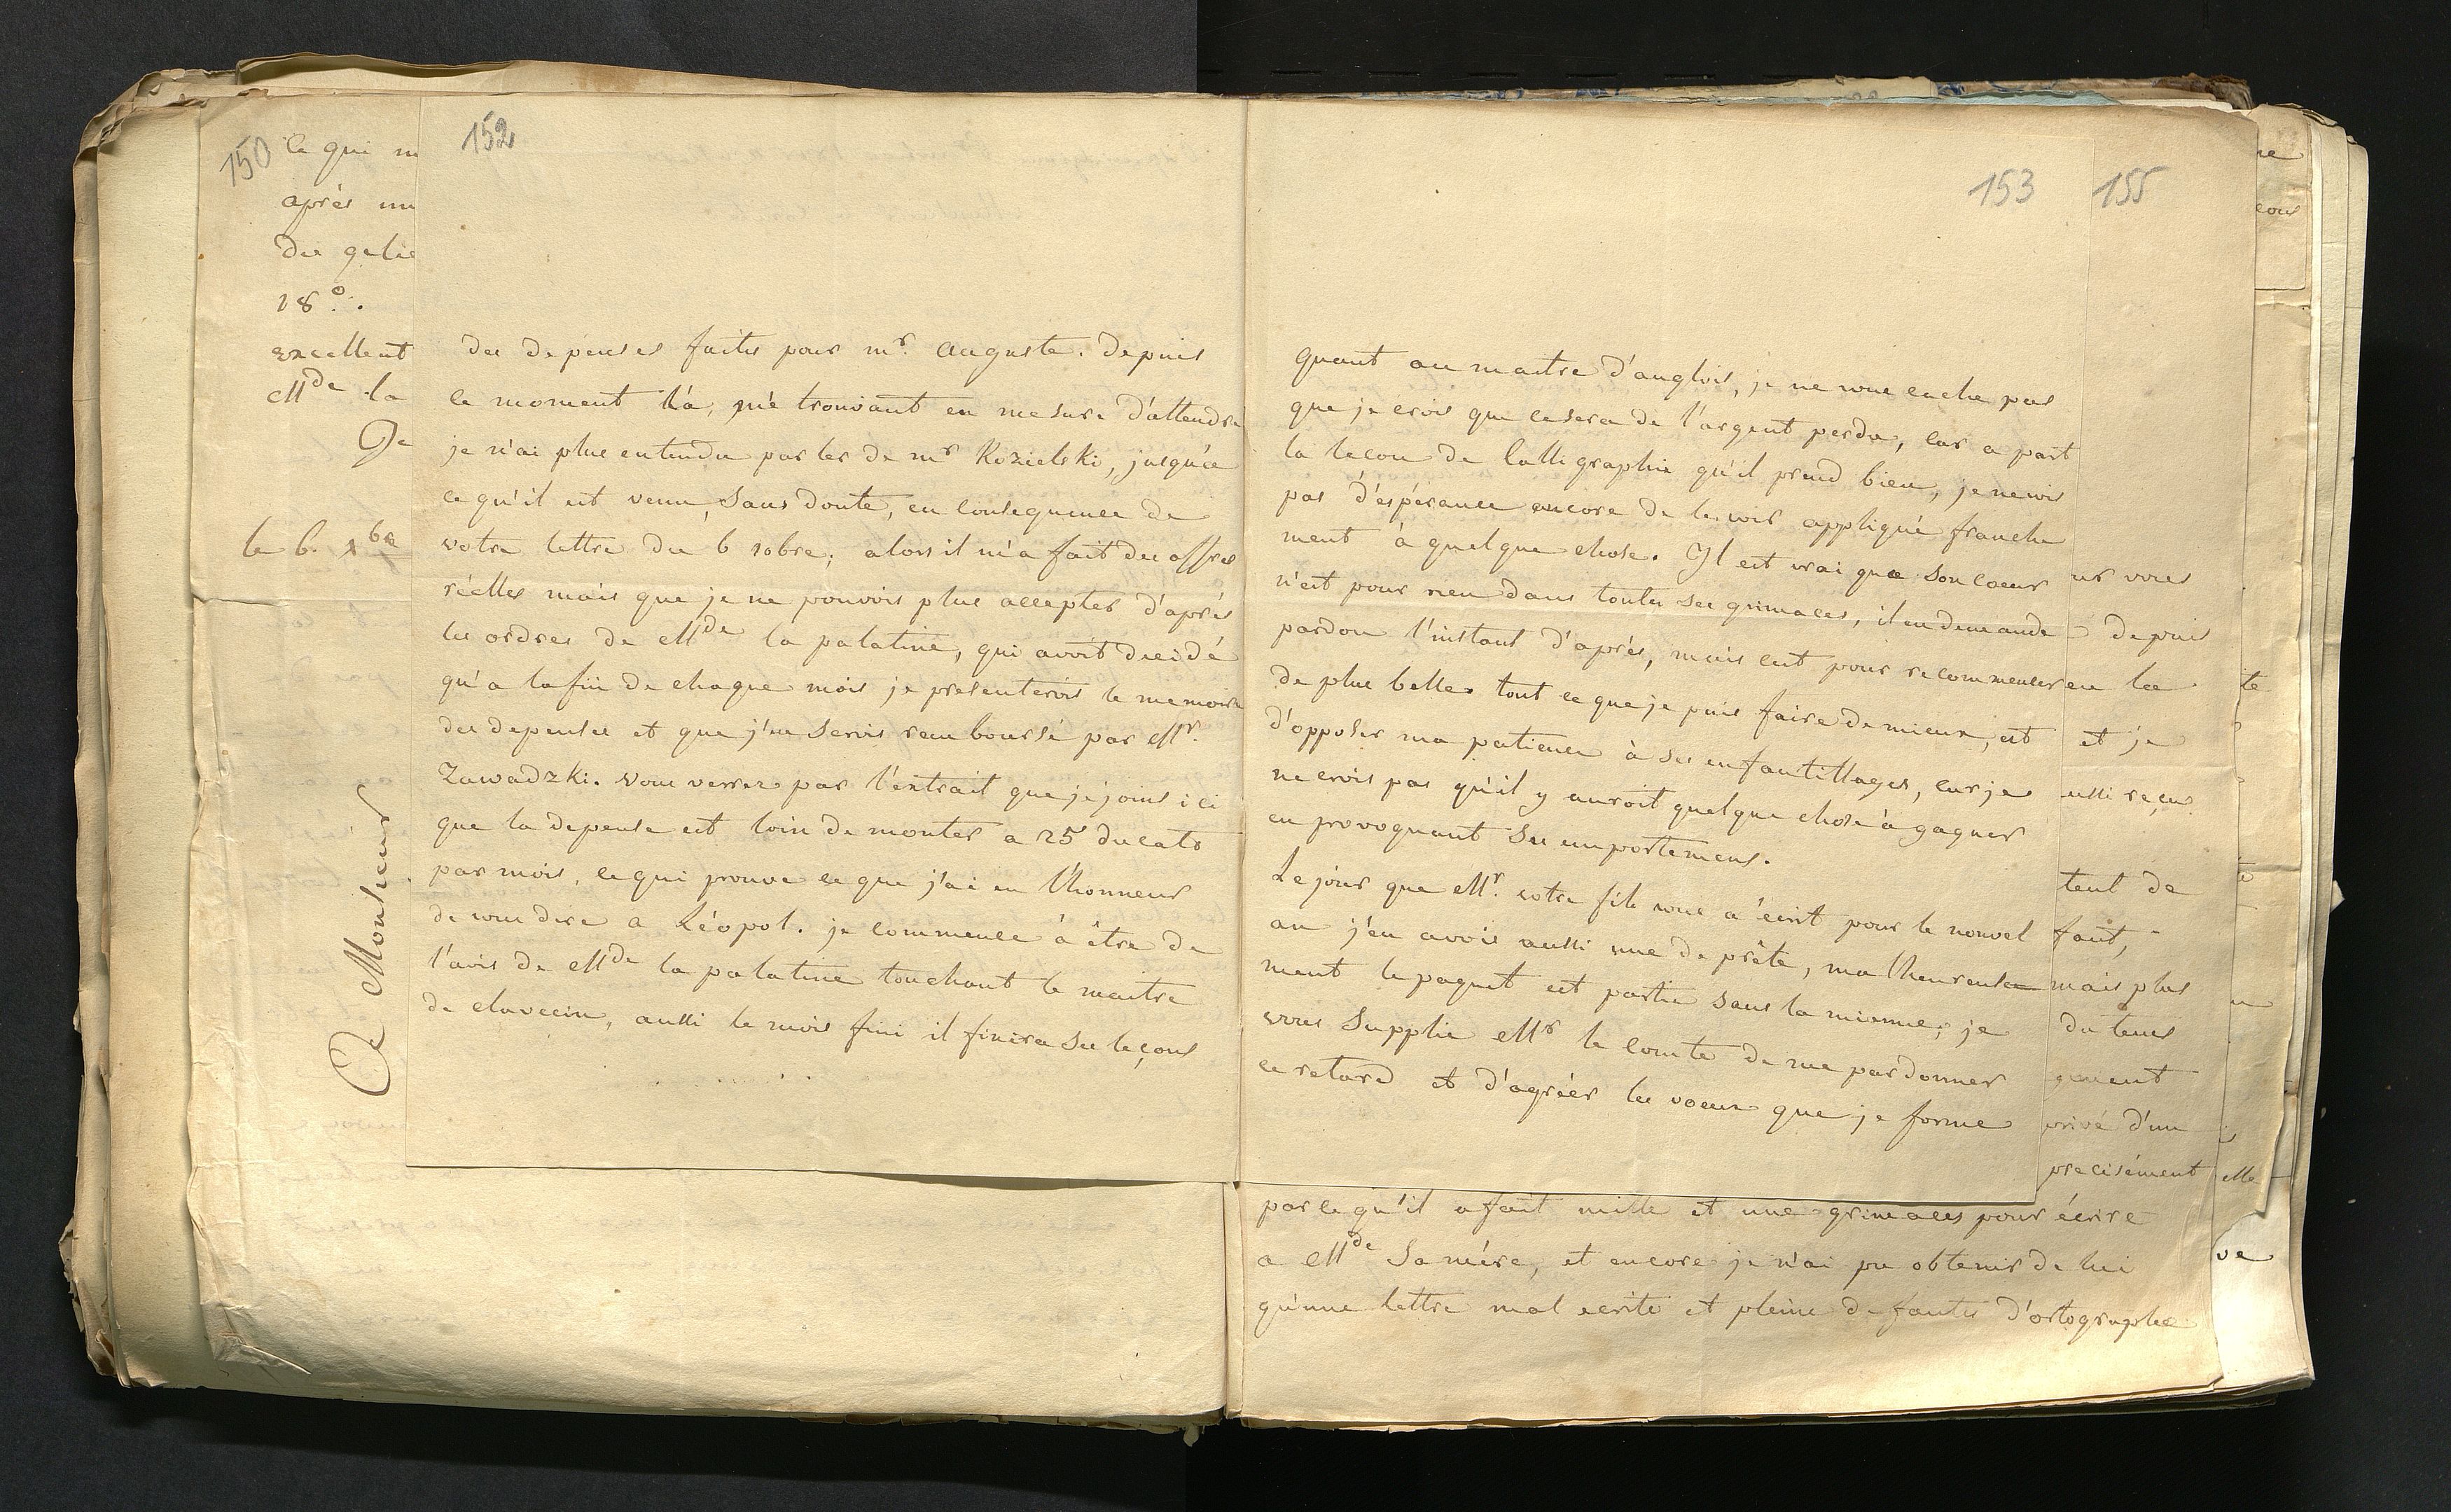 150
ce qui m
après un
du gelie
18°.
excellent
Mde la
Je
le 6. xbre
A Monsieur
152
des depenses faites pour mr. auguste. depuis
ce moment là, me trouvant en mesure d'attendre
je n'ai plus entendu parler de mr Kozielski, jusqu'a
ce qu'il est venu, sans doute, en consequence de
votre lettre du 6 10bre; alors il m'a fait des offres
réelles mais que je ne pouvois plus accepter d'après
les ordres de Mde la palatine, qui avoit decidé
qu'a la fin de chaque mois je presenterois le memoire
des depenses et que j'en serois remboursé par Mr.
Zawadzki. vous verrez par l'extrait que je joins ici
que la depense est loin de monter a 25 ducats
par mois, ce qui prouve ce que j'ai eu l'honneur
de vous dire a Léopol. je commence à être de
l'avis de Mde la palatine touchant le maitre
de clavecin, aussi le mois fini il finira ses leçons
153
quant au maitre d'anglois, je ne vous cache pas
que je crois que ce sera de l'argent perdu, car a part
la lecon de calligraphie qu'il prend bien, je ne vois
pas d'espérance encore de le voir appliqué franche
ment à quelque chose. Il est vrai que son coeur
n'est pour rien dans toutes ses grimaces, il en demande
pardon l'instant d'après, mais c'est pour recommencer
de plus belle. tout ce que je puis faire de mieux, est
d'opposer ma patience à ses enfantillages, car je
ne crois pas qu'il y auroit quelque chose à gagner
en provoquant ses emportemens.
Le jour que Mr. votre fils vous a écrit pour le nouvel
an j'en avois aussi une de prête, malheureuse
ment le paquet est partie sans la mienne; je
vous supplie Mr le comte de me pardonner
ce retard et d'agréer les voeux que je forme
155
ur vous
depuis
en la
et je
ussi reçu
tent de
faut,
mais plus
du tems
gement
privé d'un
precisément
parce qu'il a fait mille et une grimaces pour écrire
a Mde sa mère, et encore je n'ai pu obtenir de lui
qu'une lettre mal ecrite et pleine de fautes d'ortographe
te
elle
ve